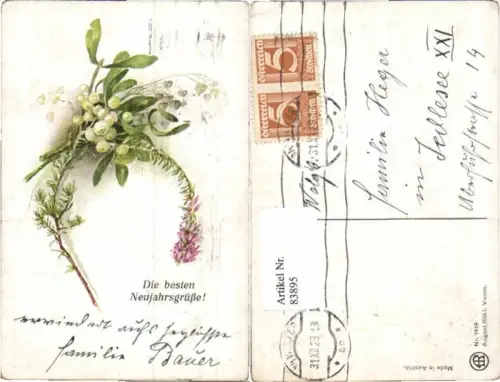 Die besten
Neujahrsgrüße!
erwiedert aufs herzlichste
familie Bauer
5
Österreich
Groschen
5
Österreich
Groschen
31.XII.29
familie Heger
in Jedlesee XXI
Artikel Nr.
83895
Nr. 1494
August Rökl, Vienne.
Made in Austria.